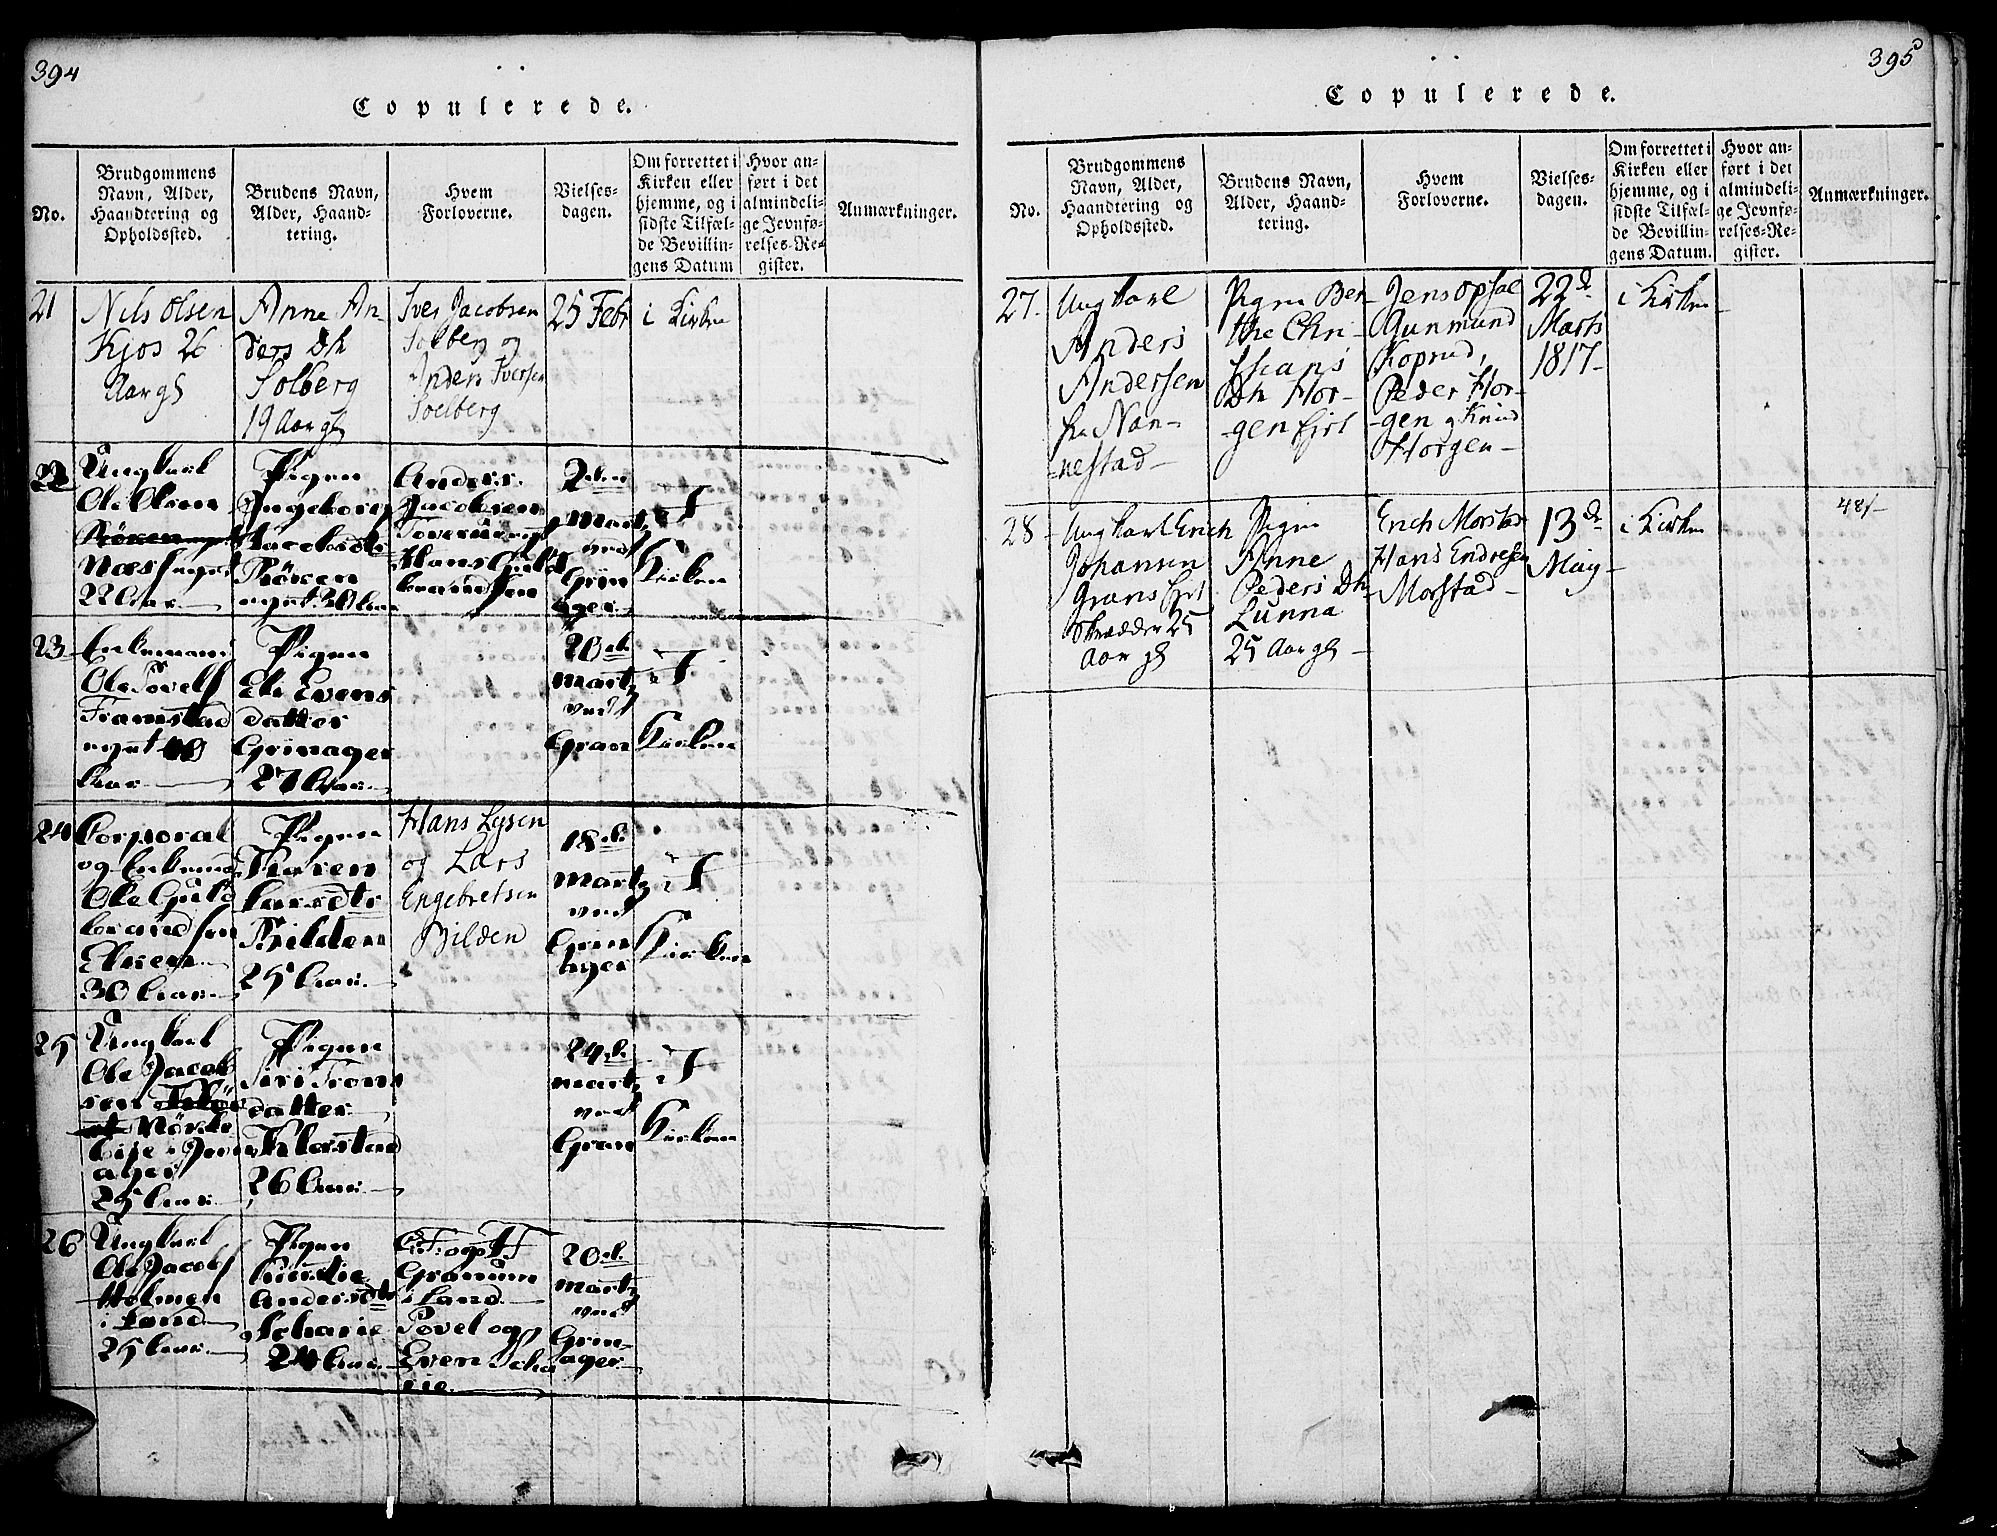 394
Copulerede.
No.
Brudgommens
Navn, Alder,
Haandtering og
Opholdssted.
Brudens Navn,
Alder, Haand-
tering.
Hvem
Forloverne.
Vielses-
dagen.
Om forrettet i
Kirken eller
hjemme, og i
sidste Tilfæl-
de Bevillin-
gens Datum
Hvor an-
ført i det
almindeli-
ge Jevnfø-
relses-Re-
gister.
Anmærkninger.
21
Nils Olsen
Kjos 26
Aar gl
Anne An-
ders Dtr
Solberg
19 Aar gl
Iver Jacobsen
Solberg og
Anders Iversen
Soelberg
25 Febr
i Kirken
22
Ungkarl
Ole Olsen
Næs
22 Aar
Pigen
Ingeborg
Jacobsdtr
Røken
Anders
Jacobsen
Hans Guld
brandsen
2den
Martz
ved
Grin
ager
I
Kirken
23
Enkemand
Ole Povels
Framstad
Aar
Pigen
Eli Evens
datter
Grinager
27 Aar
20de
Martz
ved
Gran
I
Kirken
24
Corporal
og Enkemand
Ole Guld
brandsen
30 Aar
Pigen
Karen
Larsdtr
Bilden
25 Aar
Hans Lysen
og Lars
Engebretsen
Bilden
18de
Martz
ved
Grin
ager
I
Kirken
25
Ungkarl
Ole Jacob
sen
25 Aar
Pigen
Siri Trons
datter
Klæstad
26 Aar
24de
Martz
ved
Gran
I
Kirken
26
Ungkarl
Ole Jacobs
Holmen
i Land
25 Aar
Pigen
Andersdtr
Scharie
24 Aar
Granum
i Land
Povel og
Even Scha
rie
20de
Martz
ved
Grin-
ager
395
Copulerede.
No.
Brudgommens
Navn, Alder,
Haandtering og
Opholdssted.
Brudens Navn,
Alder, Haand-
tering.
Hvem
Forloverne.
Vielses-
dagen.
Om forrettet i
Kirken eller
hjemme, og i
sidste Tilfæl-
de Bevillin-
gens Datum.
Hvor an-
ført i det
almindeli-
ge Jevnfø-
relses-Re-
gister.
Anmærkninger.
27
Ungkarl
Anders
Andersen
fra Nan-
nestad
Pigen Ber
the Chri-
stians
Dtr Hor-
gen Eje
Jens Opsal
Gunmund
Koprud,
Peder Hor-
gen og Knud
Horgen
22d
Marts
1817
i Kirken
28
Ungkarl Erich
Johansen
Grans Eje
Skrædder 25
Aar gl
Pigen
Anne
Peders Dtr
Lunna
25 Aar gl
Erich Morstad
Hans Endresen
Morstad
13de
May
i Kirken
48/-